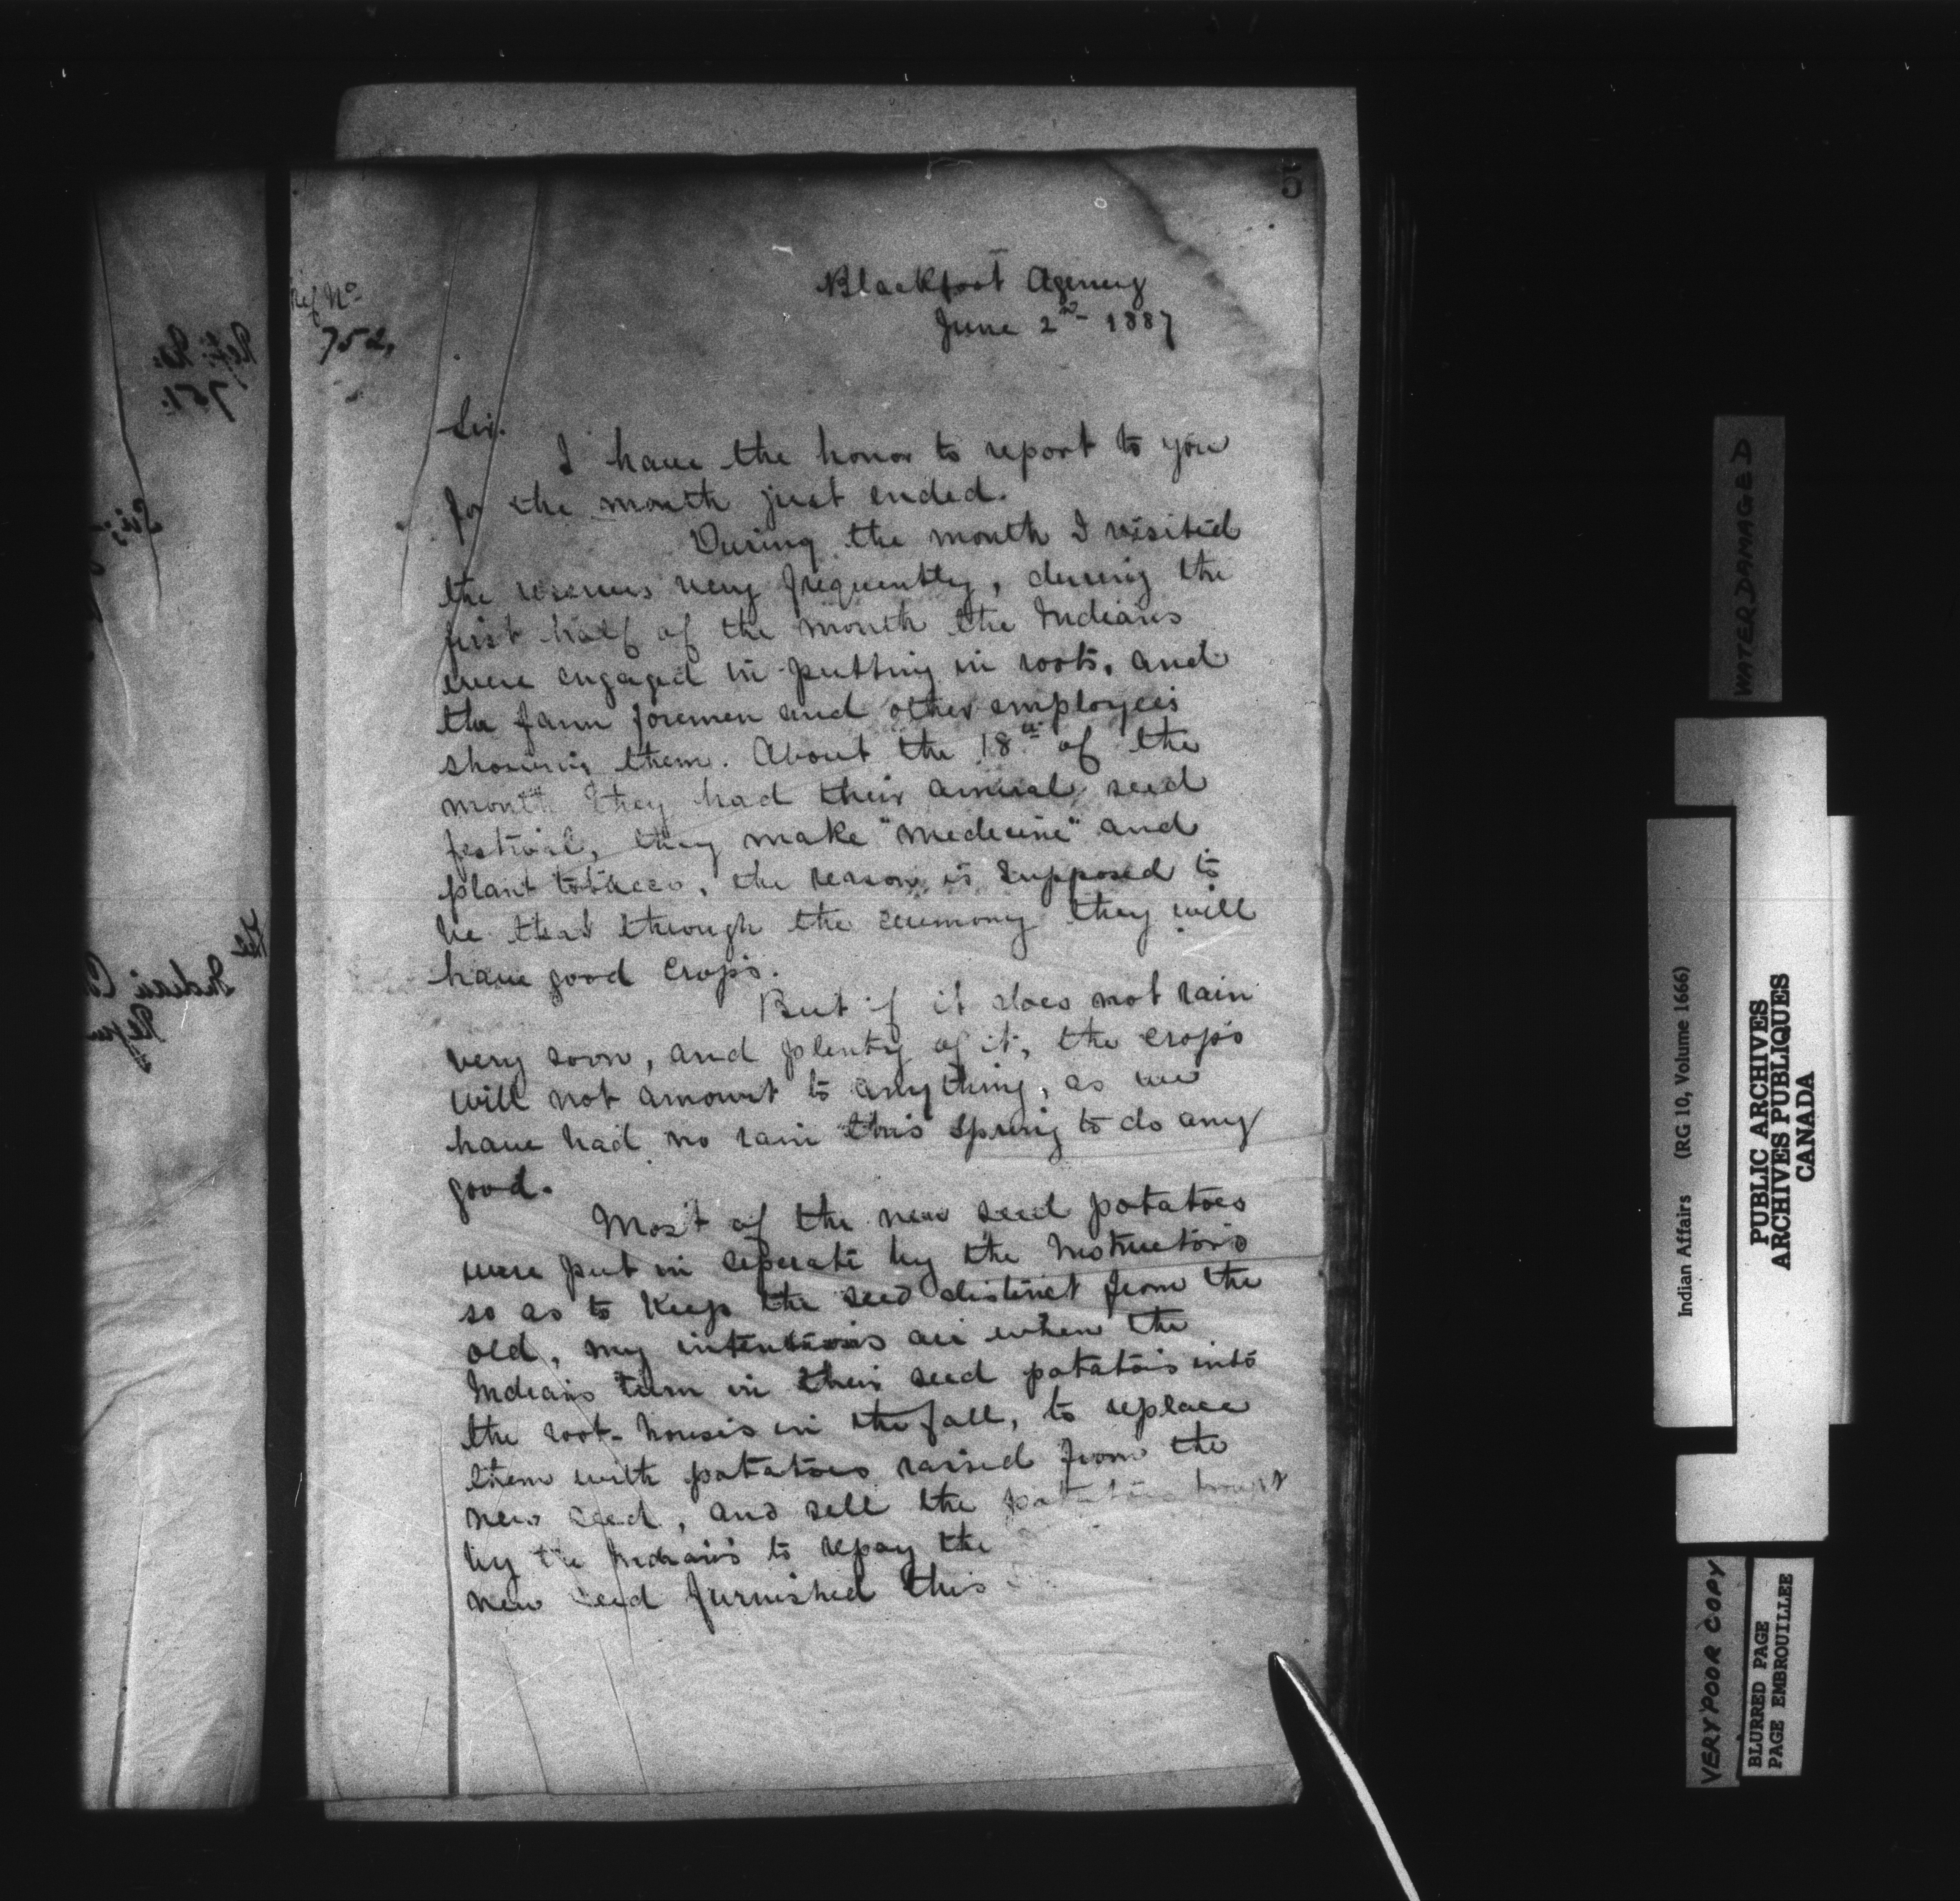 5
Blackfoot Agency
June 2nd 1887
Ref No
752.
Sir.
I have the honor to report to you
for the month just ended.
During the month I visited
the reserves very frequently, during the
first half of the month the Indians
were engaged in putting in roots, and
the farm foremen and other employees
showing them. About the 18th of the
month they had their annual seed
festival, they make "medecine" and
plant tobacco, the reason is supposed to
be that through the ceremony they will
have good crops.
But if it does not rain
very soon, and plenty of it, the crops
will not amount to anything, as we
have had no rain this spring to do any
good.
Most of the new seed potatoes
were put in seperate by the Instructors
so as to keep the seed distinct from the
old, my intentions are when the
Indians turn in their seed potatoes into
the root-houses in the fall, to replace
them with potatoes raised from the
new seed, and sell the potatoes brought
by the Indians to repay the
new seed furnished this
Ref: No:
751.
Sir;
The
Indian
WATER DAMAGED
Indian Affairs (RG 10, Volume 1666)
PUBLIC ARCHIVES
ARCHIVES PUBLIQUES
CANADA
VERY POOR COPY
BLURRED PAGE
PAGE EMBROUILLEE